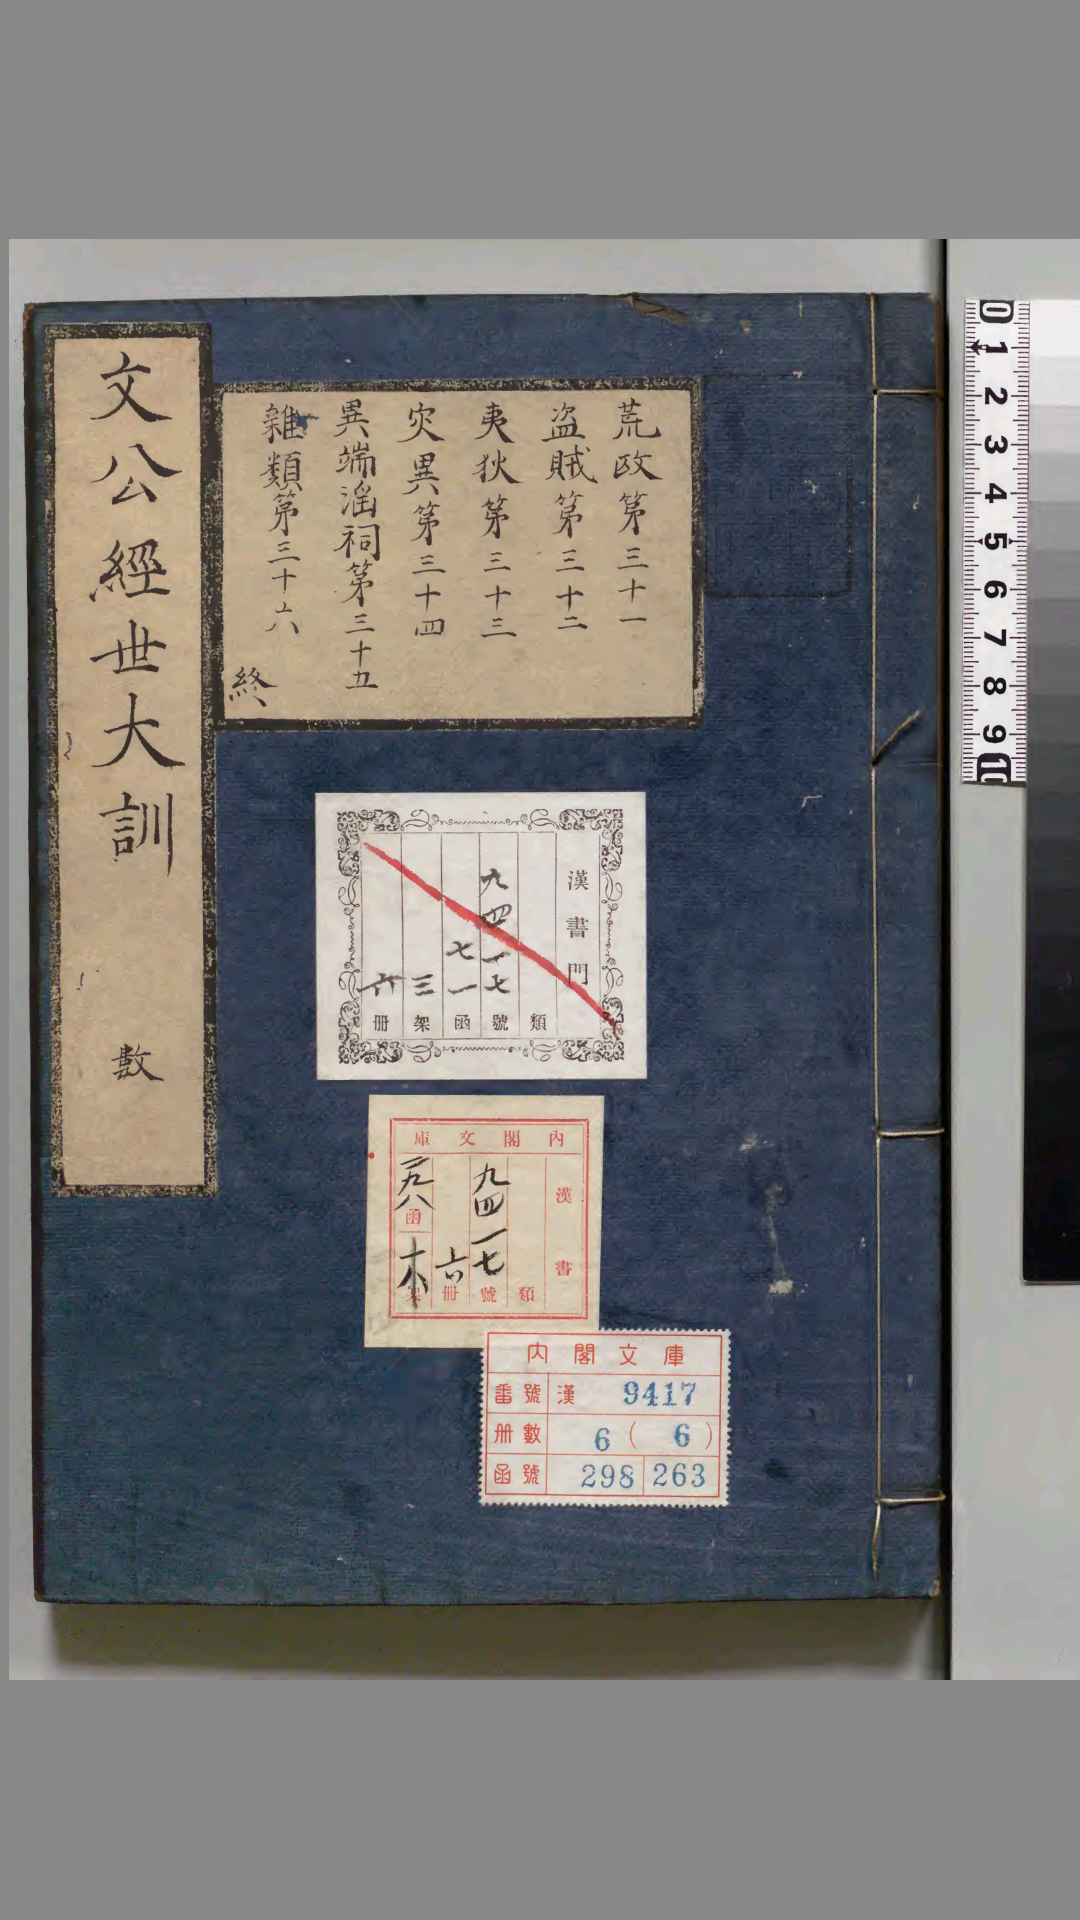 文公經世大訓 數
荒政第三十一
盗賊第三十二
夷狄第三十三
灾異第三十四
異端淫祠第三十五
雜類第三十六
終
漢書門
類
九四一七號
七一函
三架
六册
内閣文庫
漢書
類
九四一七號
六冊
二九八函
架
内閣文庫
番號 漢 9417
冊數 6 ( 6 )
函號 298 263
0 1 2 3 4 5 6 7 8 9 10